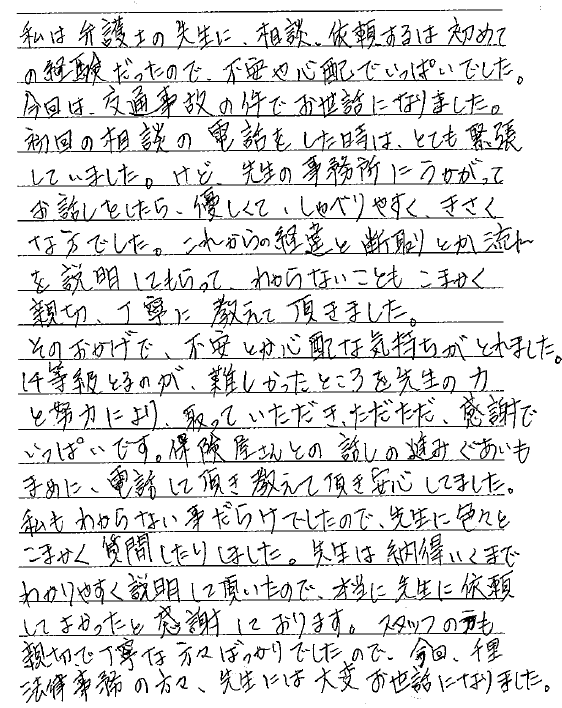 私は弁護士の先生に、相談、依頼するは初めて
の経験だったので、不安や心配でいっぱいでした。
今回は、交通事故の件でお世話になりました。
初回の相談の電話をした時は、とても緊張
していました。けど、先生の事務所にうかがって
お話しをしたら、優しくて、しゃべりやすく、きさく
な方でした。これからの経達と断取りとか流れ
を説明してもらって、わからないこともこまかく
親切、丁寧に教えて頂きました。
そのおかげで、不安とか心配な気持ちがとれました。
14等級とるのが、難しかったところを先生の力
と努力により、取っていただき、ただただ、感謝で
いっぱいです。保険屋さんとの話しの進みぐあいも
まめに、電話して頂き教えて頂き安心してました。
私もわからない事だらけでしたので、先生に色々と
こまかく質問したりしました。先生は納得いくまで
わかりやすく説明して頂いたので、本当に先生に依頼
してよかったと感謝しております。スタッフの方も
親切で丁寧な方々ばっかりでしたので、今回、千里
法律事務の方々、先生には大変お世話になりました。